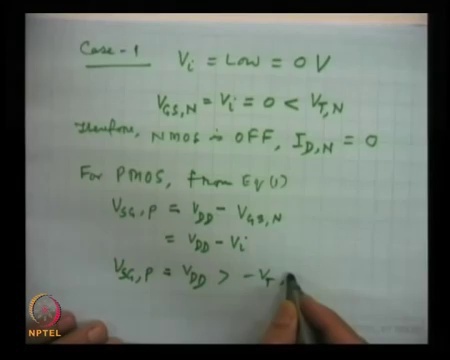 Case-1 Vi = Low = 0 V
VGS,N = Vi = 0 < VT,N
Therefore, NMOS is OFF, ID,N = 0
For PMOS, from Eq(1)
VSG,P = VDD - VGS,N
= VDD - Vi
VSG,P = VDD > -VT,
NPTEL